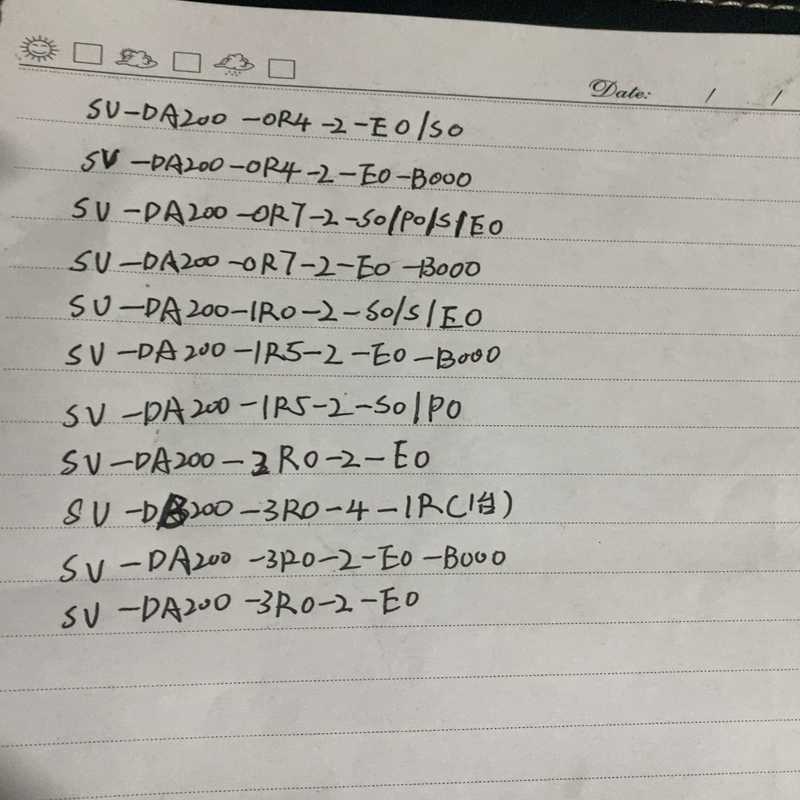 Date: / /
SV-DA200-0R4-2-E0/S0
SV-DA200-0R4-2-E0-B000
SV-DA200-0R7-2-S0/P0/S/E0
SV-DA200-0R7-2-E0-B000
SV-DA200-1R0-2-S0/S/E0
SV-DA200-1R5-2-E0-B000
SV-DA200-1R5-2-S0/P0
SV-DA200-2R0-2-E0
SV-DB200-3R0-4-1R(1台)
SV-DA200-3R0-2-E0-B000
SV-DA200-3R0-2-E0